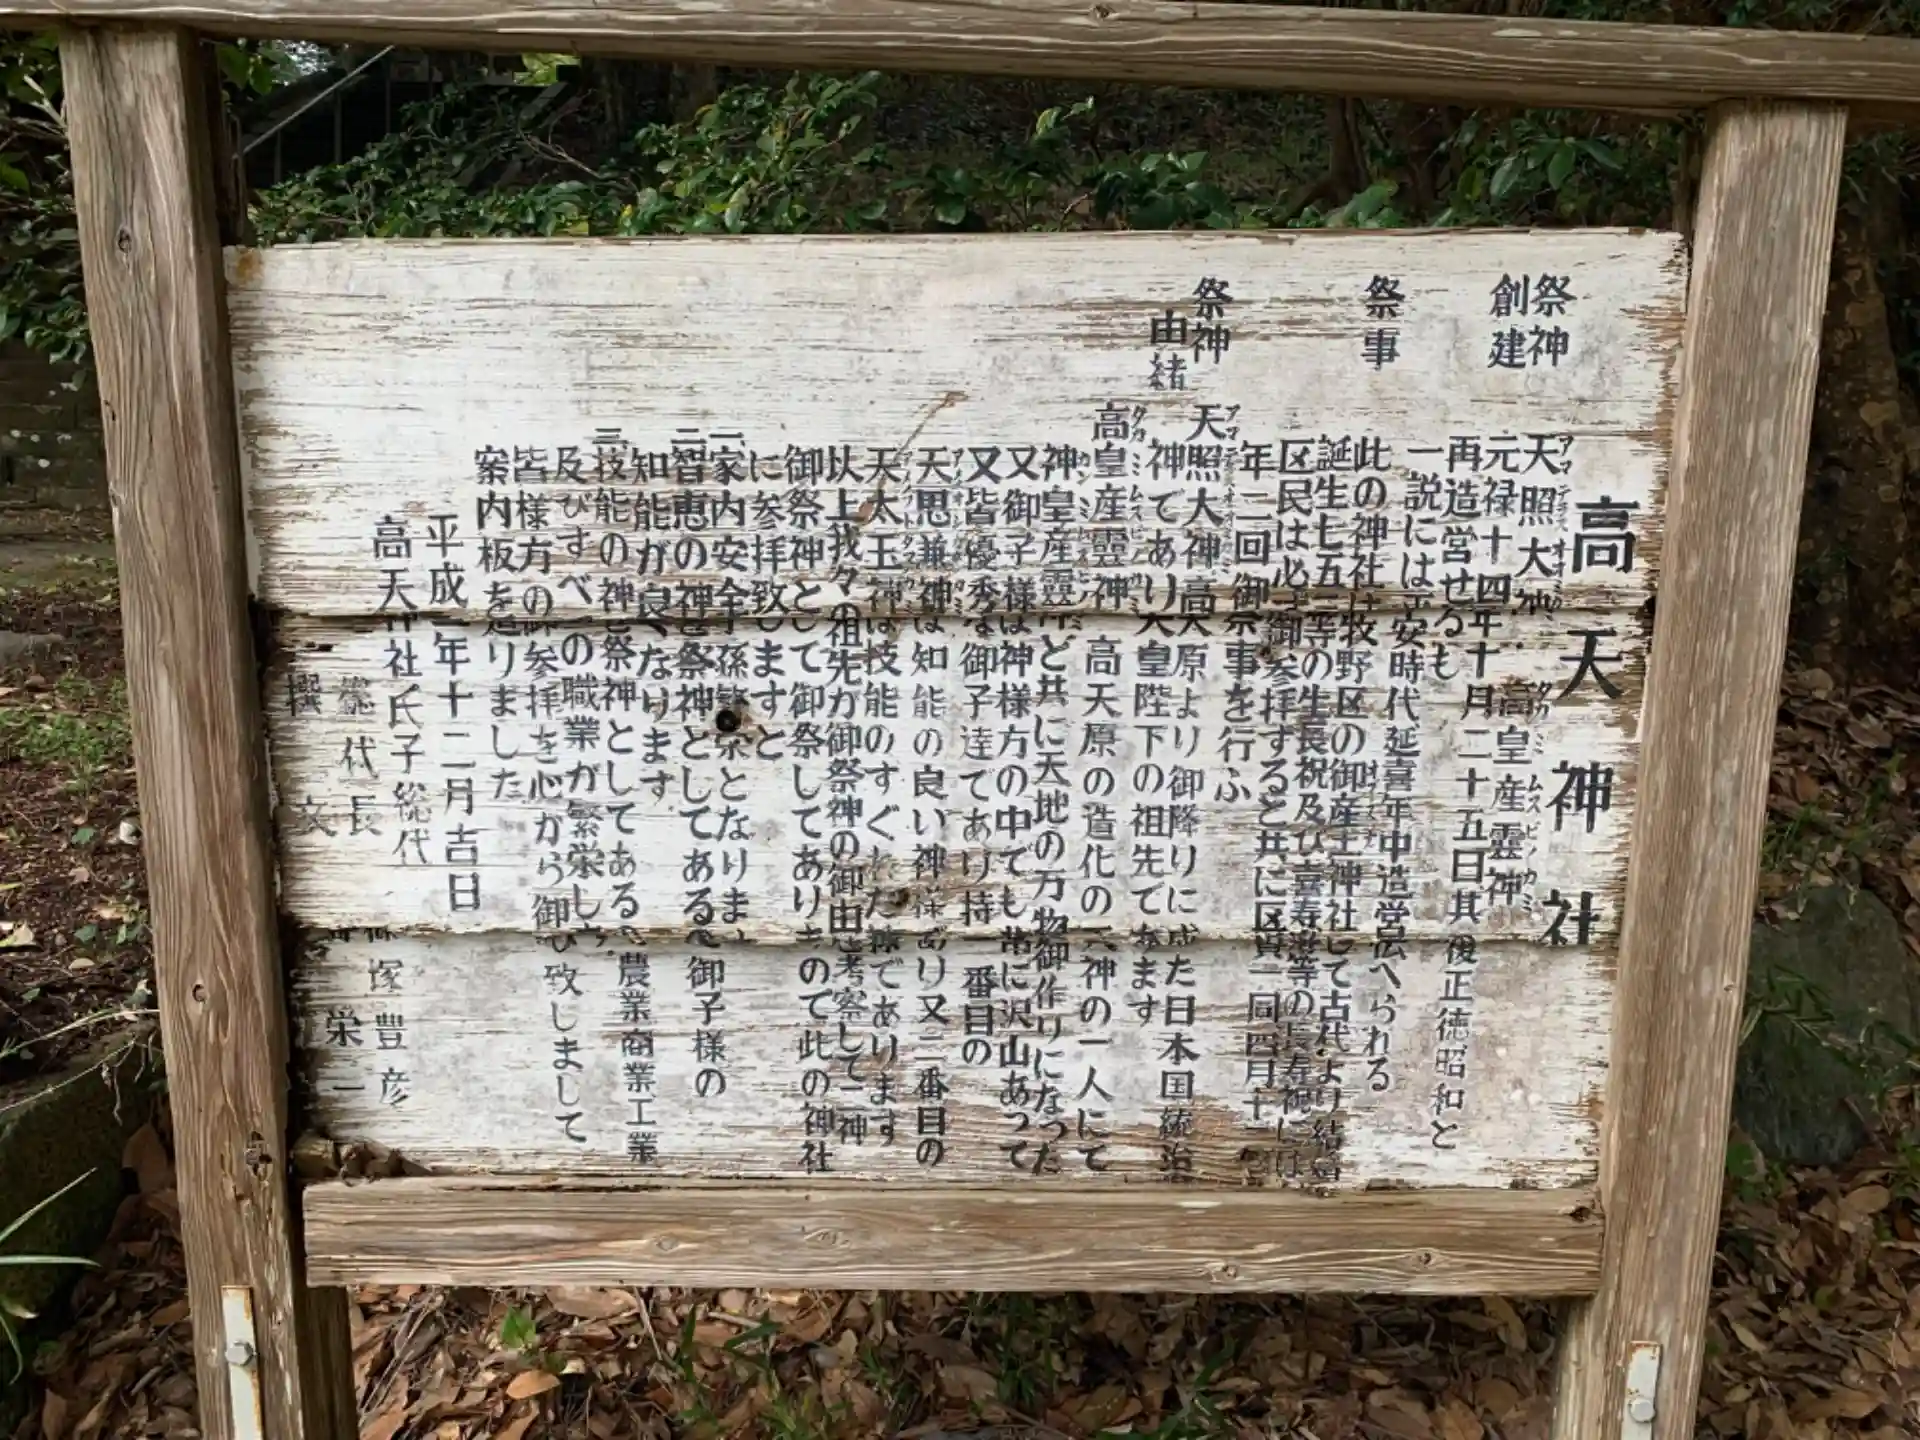 高天神社
祭神 天照大神 高皇産霊神
アマテラスオオミカミ タカミムスビノカミ
創建 元禄十四年十月二十五日其後正徳昭和と
再造営せるも
一説には平安時代延喜年中造営伝へられる
祭事 此の神社は牧野区の御産土神社して古代より結婚
誕生七五三等の生長祝及び喜寿 等の長寿祝には
区民は必ず御参拝すると共に区民一同四月十
年二回御祭事を行ふ
祭神 天照大神高天原より御降りに成た日本国統治
由緒 神であり天皇陛下の祖先であます
高皇産霊神 高天原の造化の三神の一人にて
タカミムスビノカミ
神皇産霊神と共に天地の万物御作りになった
又御子様は神様方の中ても常に沢山あって
又皆優秀な御子達てあり特 一番目の
天思兼神は知能の良い神様あり又二番目の
天太玉神は技能のすぐれた神であります
以上我々の祖先が御祭神の御由 考察して二神
御祭神として御祭してありものて此の神社
に参拝致しますと
一、家内安全子孫繁栄となりま
二、智恵の神 祭神としてある 御子様の
知能が良くなります
三、技能の神 祭神としてある 農業商業工業
及びすべての職業が繁栄し
皆様方の御参拝を心から御 致しまして
案内板を造りました
平成 年十二月吉日
高天神社氏子総代
総代長 塚豊彦
撰文 栄一